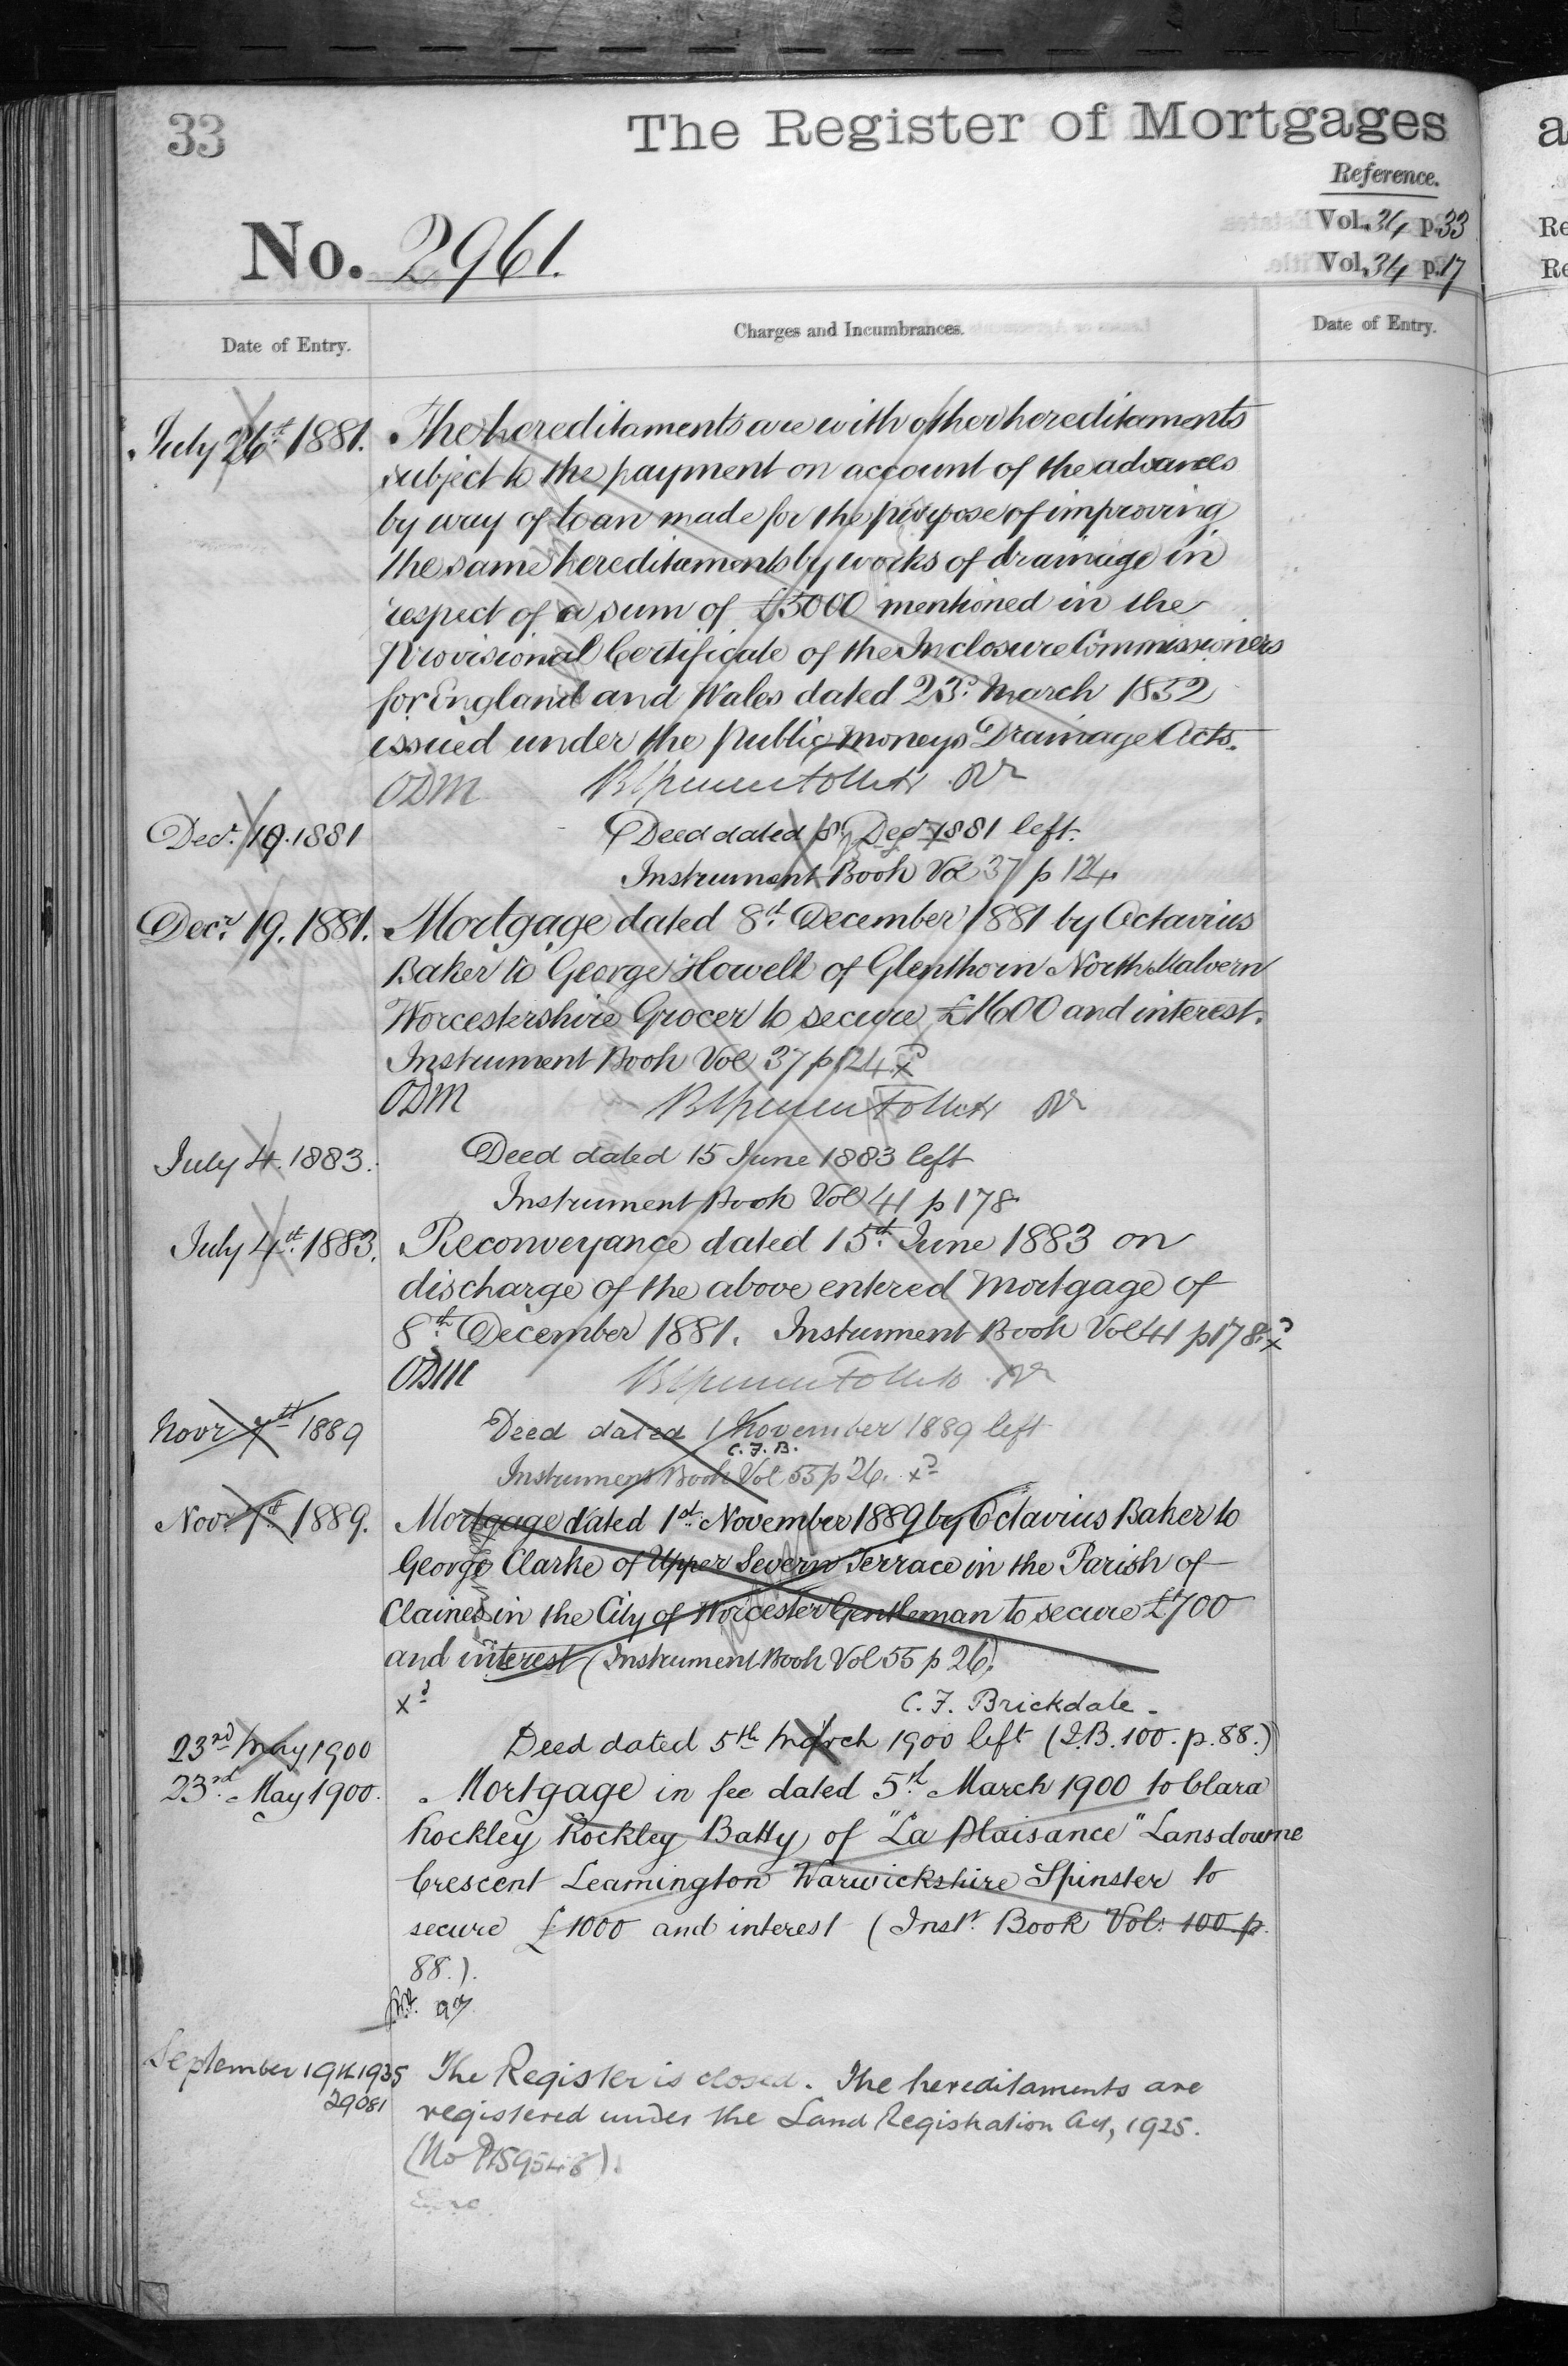 33
The Register of Mortgages
Reference.
Vol. 34 p. 33
Vol. 34 p. 17
No. 2961.
Date of Entry.
Charges and Incumbrances.
Date of Entry.
July 26th 1881. The hereditaments are with other hereditaments
subject to the payment on account of the advances
by way of loan made for the purpose of improving
the same hereditaments by works of drainage in
respect of a sum of £5000 mentioned in the
Provisional Certificate of the Inclosure Commissioners
for England and Wales dated 23d March 1852
issued under the Public moneys Drainage Acts.
ODM
Decr. 19. 1881 Deed dated 8th Decr 1881 left.
Instrument Book Vol 37 p 124.
Decr. 19. 1881. Mortgage dated 8th December 1881 by Octavius
Baker to George Howell of Glenthorn North Malvern
Worcestershire Grocer to secure £1600 and interest.
Instrument Book Vol 37 p 124 xd
ODM
July 4. 1883. Deed dated 15 June 1883 left
Instrument Book Vol 41 p 178
July 4th 1883. Reconveyance dated 15th June 1883 on
discharge of the above entered Mortgage of
8th December 1881. Instrument Book Vol 41 p 178. xd
ODM
Novr 7th 1889 Deed dated 1 November 1889 left
C.F.B.
Instrument Book Vol 55 p 26. xd
Novr. 7th 1889. Mortgage dated 1st November 1889 by Octavius Baker to
George Clarke of Upper Severn Terrace in the Parish of
Claines in the City of Worcester Gentleman to secure £700
and interest (Instrument Book Vol 55 p 26).
xd C.F. Brickdale.
23rd May 1900 Deed dated 5th March 1900 left (I.B. 100. p. 88.)
23rd May 1900. Mortgage in fee dated 5th March 1900 to Clara
Rockley Rockley Batty of "La Plaisance" Lansdowne
Crescent Leamington Warwickshire Spinster to
secure £1000 and interest (Instr. Book Vol: 100 p.
88.).
September 19th 1935 The Register is closed. The hereditaments are
29081 registered under the Land Registration Act, 1925.
a
Re
Re